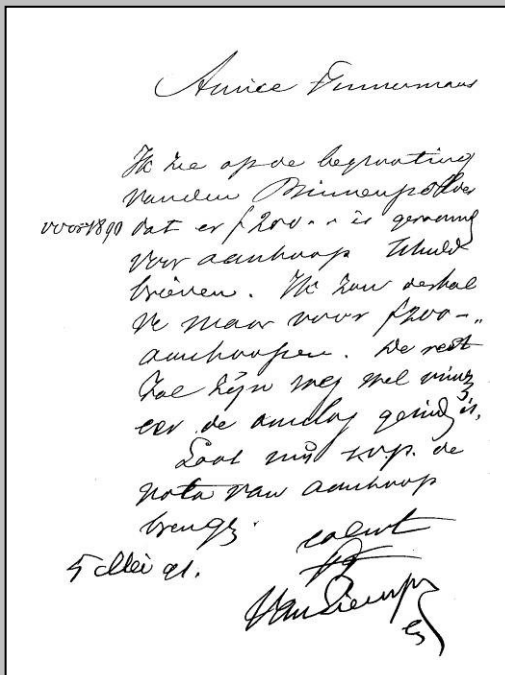 Amice Timmermans
Ik zie op de begrooting
van den Binnenpolder
voor 1890 dat er f 200.- is geraamd
voor aankoop schuld
brieven. Ik zou derhal
ve maar voor f 200-
aankoopen. De rest
zal zijn weg wel vinden
eer de omslag geind is.
Laat mij s.v.p. de
nota van aankoop
brengen.
salut
5 Mei 91.